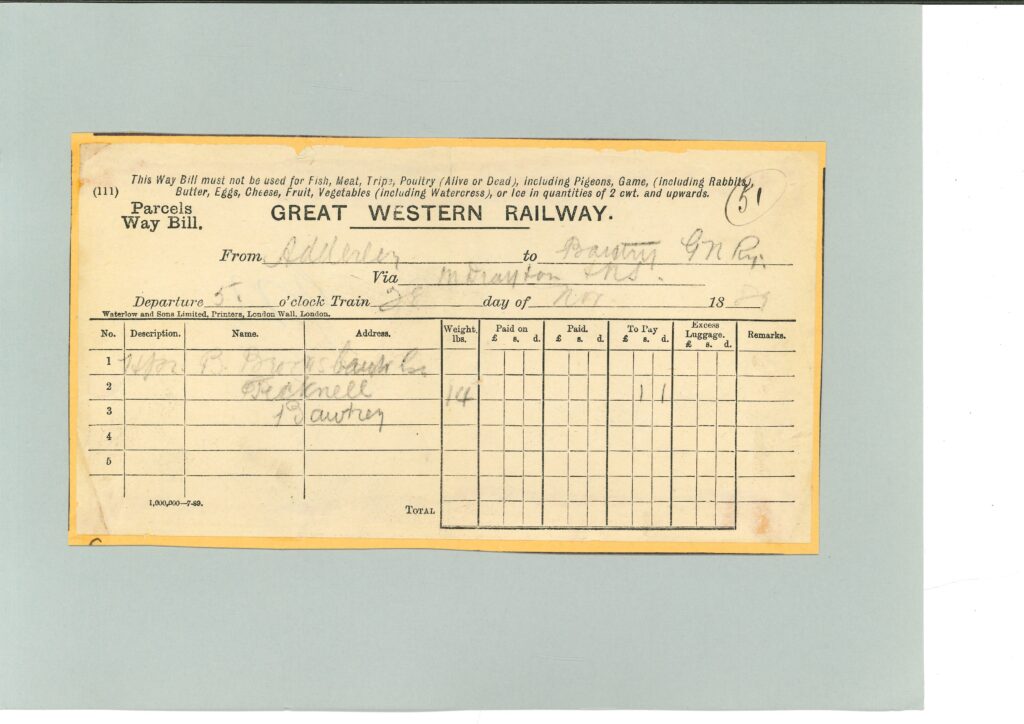 This Way Bill must not be used for Fish, Meat, Tripe, Poultry (Alive or Dead), including Pigeons, Game, (including Rabbits),
(111) Butter, Eggs, Cheese, Fruit, Vegetables (including Watercress), or Ice in quantities of 2 cwt. and upwards.
51
Parcels
Way Bill.
GREAT WESTERN RAILWAY.
From Adderley to Bawtry G N Ry.
Via M Drayton
Departure 5. o'clock Train 28 day of Nov 18 89
Waterlow and Sons Limited, Printers, London Wall, London.
No. Description. Name. Address. Weight. lbs. Paid on £ s. d. Paid. £ s. d. To Pay £ s. d. Excess Luggage. £ s. d. Remarks.
1 B.
2 14 1 1
3 Bawtrey
4
5
1,000,000—7-89.
TOTAL